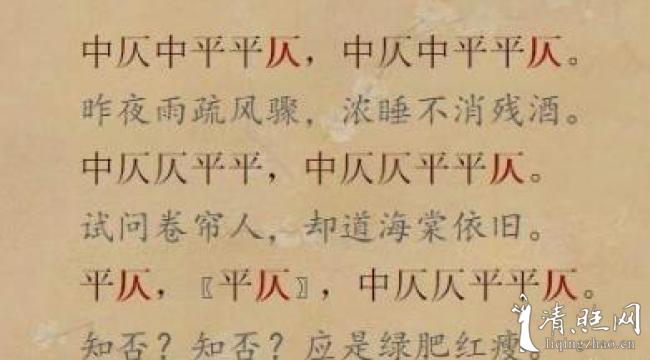 中仄中平平仄，中仄中平平仄。
昨夜雨疏风骤，浓睡不消残酒。
中仄仄平平，中仄仄平平仄。
试问卷帘人，却道海棠依旧。
平仄，〖平仄〗，中仄仄平平仄。
知否？知否？应是绿肥红瘦
清旺网
liqingzhao.cn